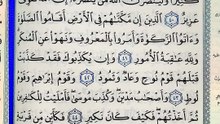 عَزِيزٌ ٤٠ الَّذِينَ إِن مَّكَّنَّاهُمْ فِي الْأَرْضِ أَقَامُوا الصَّلَاةَ
وَآتَوُا الزَّكَاةَ وَأَمَرُوا بِالْمَعْرُوفِ وَنَهَوْا عَنِ الْمُنكَرِ
وَلِلَّهِ عَاقِبَةُ الْأُمُورِ ٤١ وَإِن يُكَذِّبُوكَ فَقَدْ كَذَّبَتْ
قَبْلَهُمْ قَوْمُ نُوحٍ وَعَادٌ وَثَمُودُ ٤٢ وَقَوْمُ إِبْرَاهِيمَ وَقَوْمُ
لُوطٍ ٤٣ وَأَصْحَابُ مَدْيَنَ وَكُذِّبَ مُوسَىٰ فَأَمْلَيْتُ لِلْكَافِرِينَ
ثُمَّ أَخَذْتُهُمْ فَكَيْفَ كَانَ نَكِيرِ ٤٤